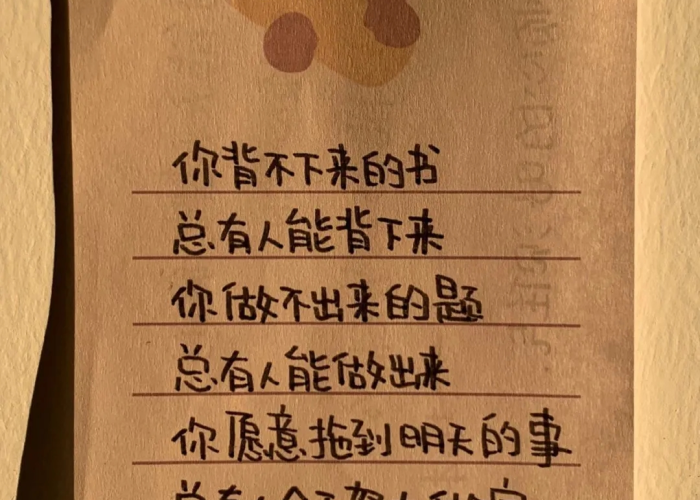 你背不下来的书
总有人能背下来
你做不出来的题
总有人能做出来
你愿意拖到明天的事
总有人